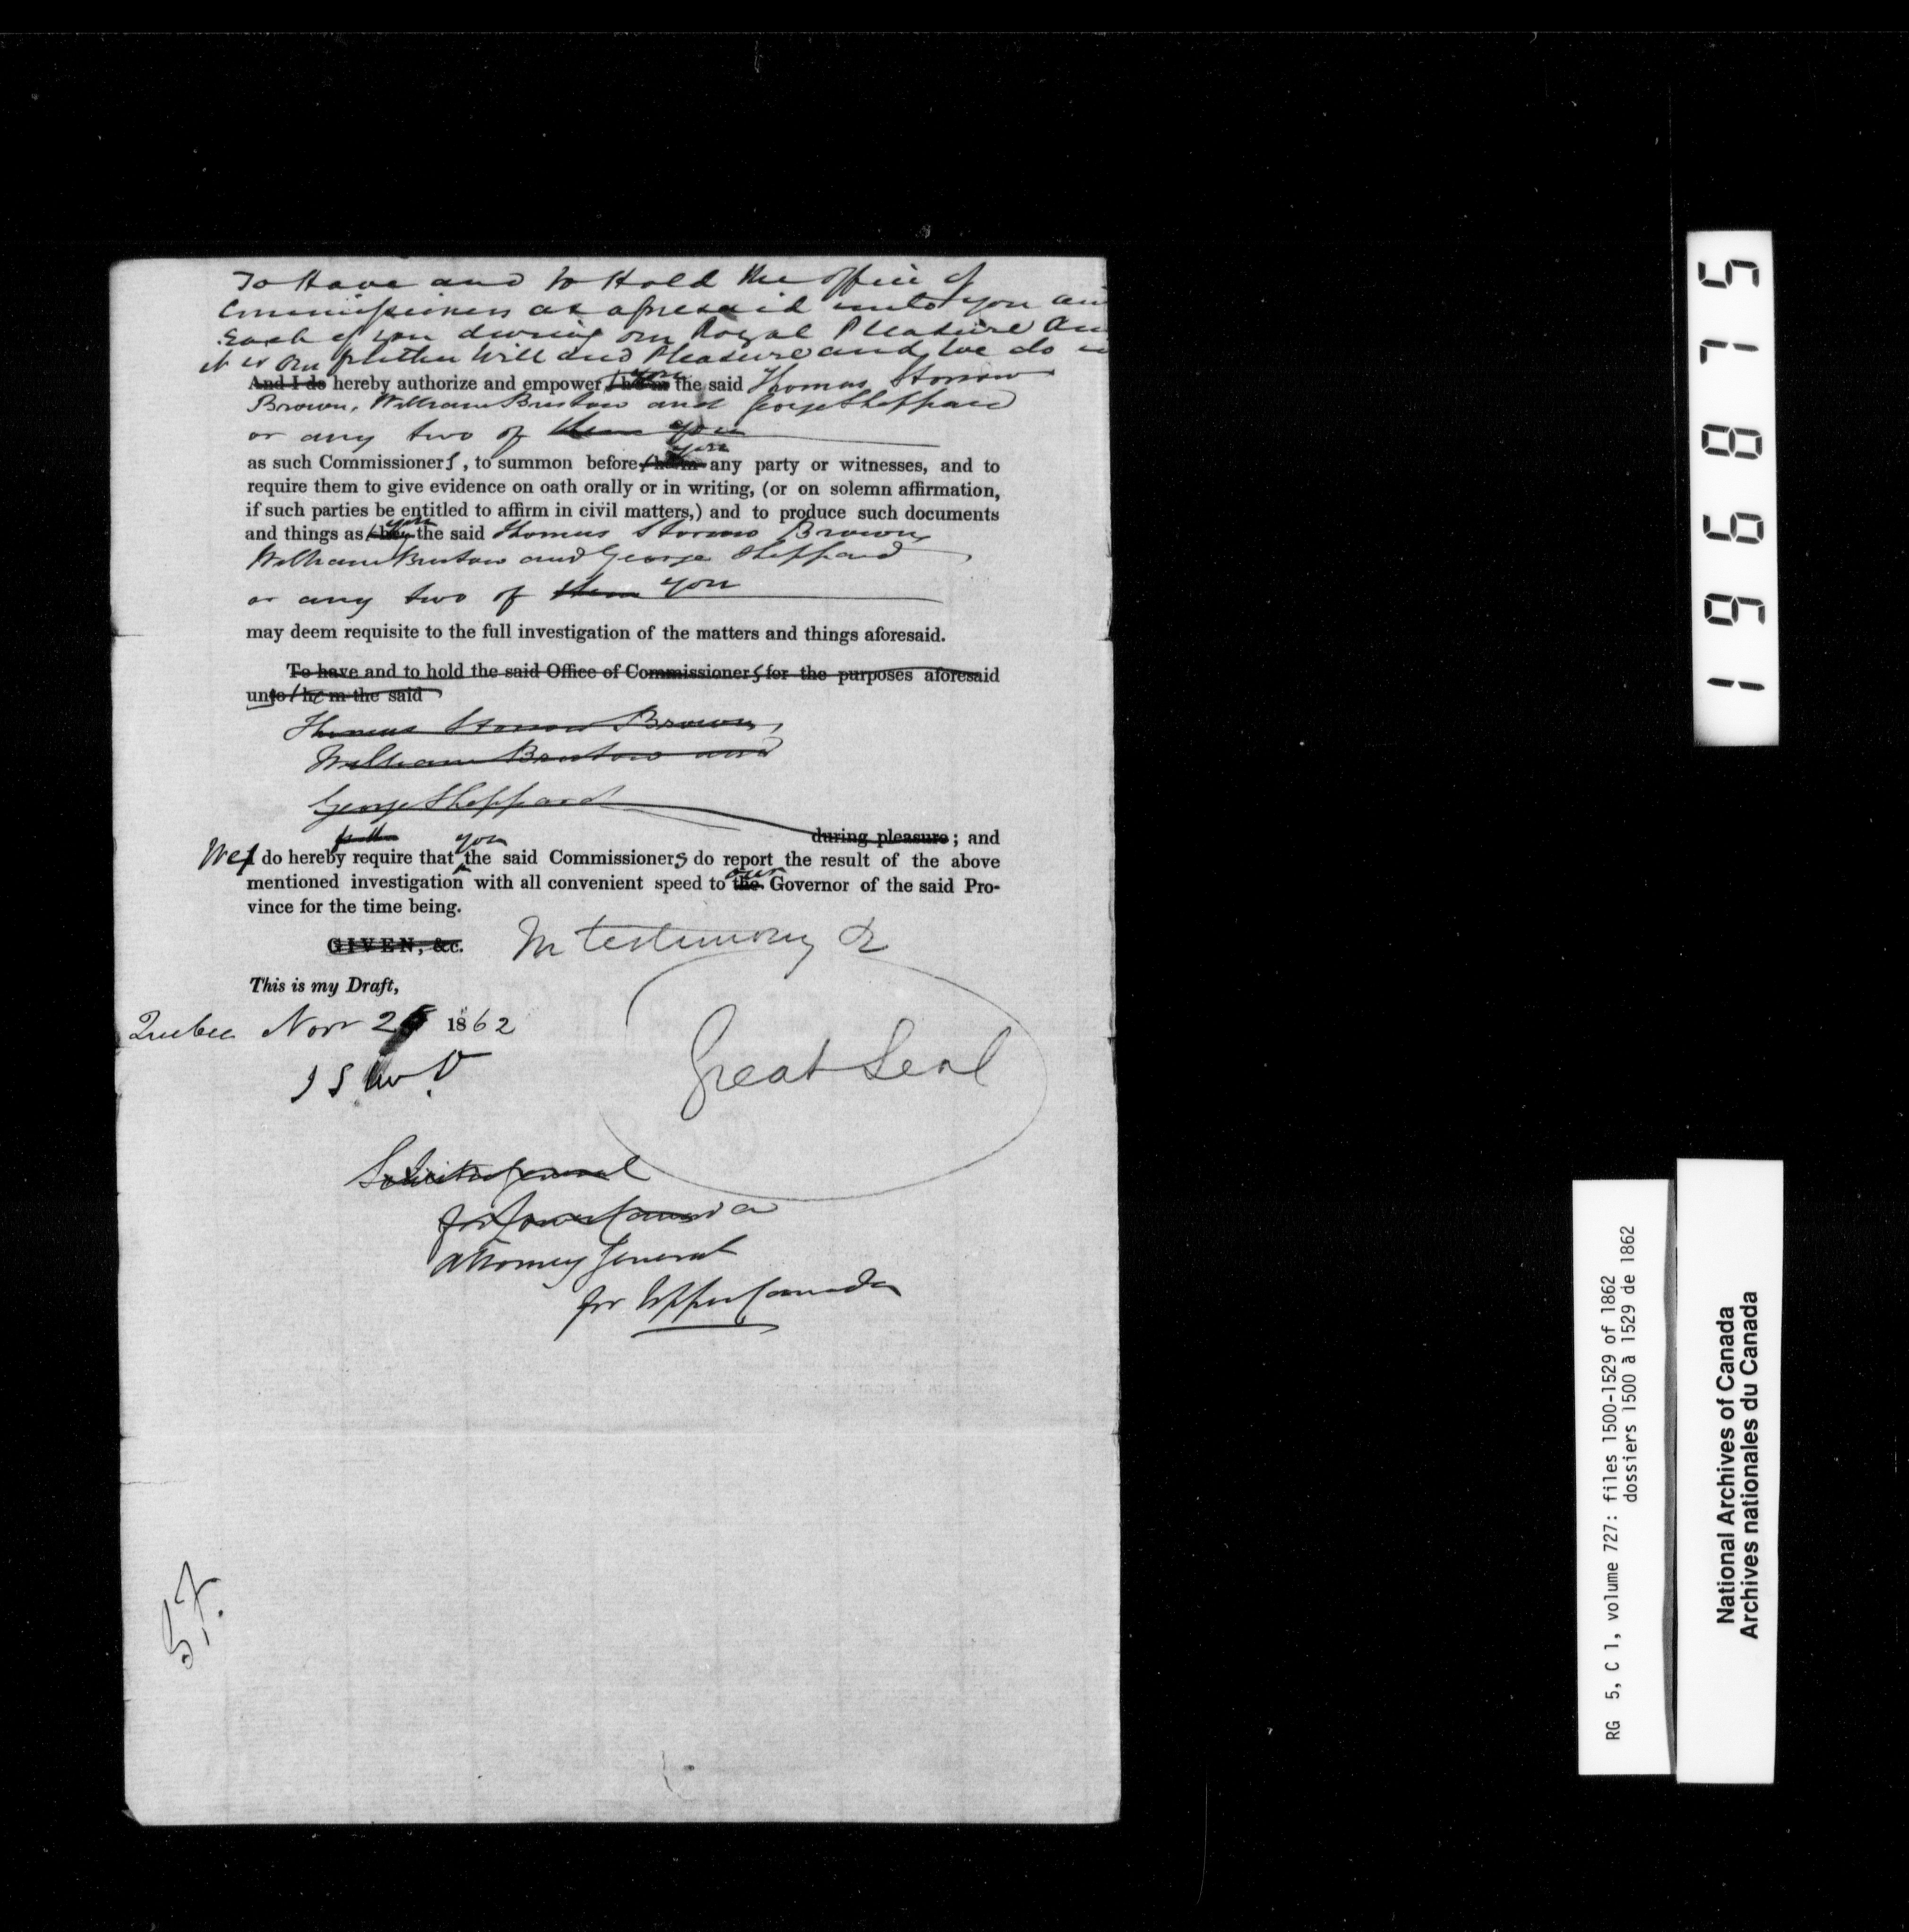 To Have and to Hold the office of
Commissioners as aforesaid unto you an
Each of you during our Royal Pleasure An
it is Our further Will and Pleasure and We do
And I do hereby authorize and empower them you the said Thomas Storrow
Brown, William Bristow and George Sheppard
or any two of them you
as such Commissioners, to summon before them you any party or witnesses, and to
require them to give evidence on oath orally or in writing, (or on solemn affirmation,
if such parties be entitled to affirm in civil matters,) and to produce such documents
and things as they you the said Thomas Storrow Brown,
William Bristow and George Sheppard,
or any two of them you
may deem requisite to the full investigation of the matters and things aforesaid.
To have and to hold the said Office of Commissioners for the purposes aforesaid
unto them the said
Thomas Storrow Brown,
William Bristow and
George Sheppard
during pleasure; and
We I do hereby require that you the said Commissioners do report the result of the above
mentioned investigation with all convenient speed to the our Governor of the said Pro-
vince for the time being.
GIVEN, &c. In testimony &
This is my Draft,
Quebec Novr 2 1862
J S McD
Great Seal
Solicitor General
for Lower Canada
Attorney General
for Upper Canada
196875
RG 5, C 1, volume 727: files 1500-1529 of 1862
dossiers 1500 à 1529 de 1862
National Archives of Canada
Archives nationales du Canada